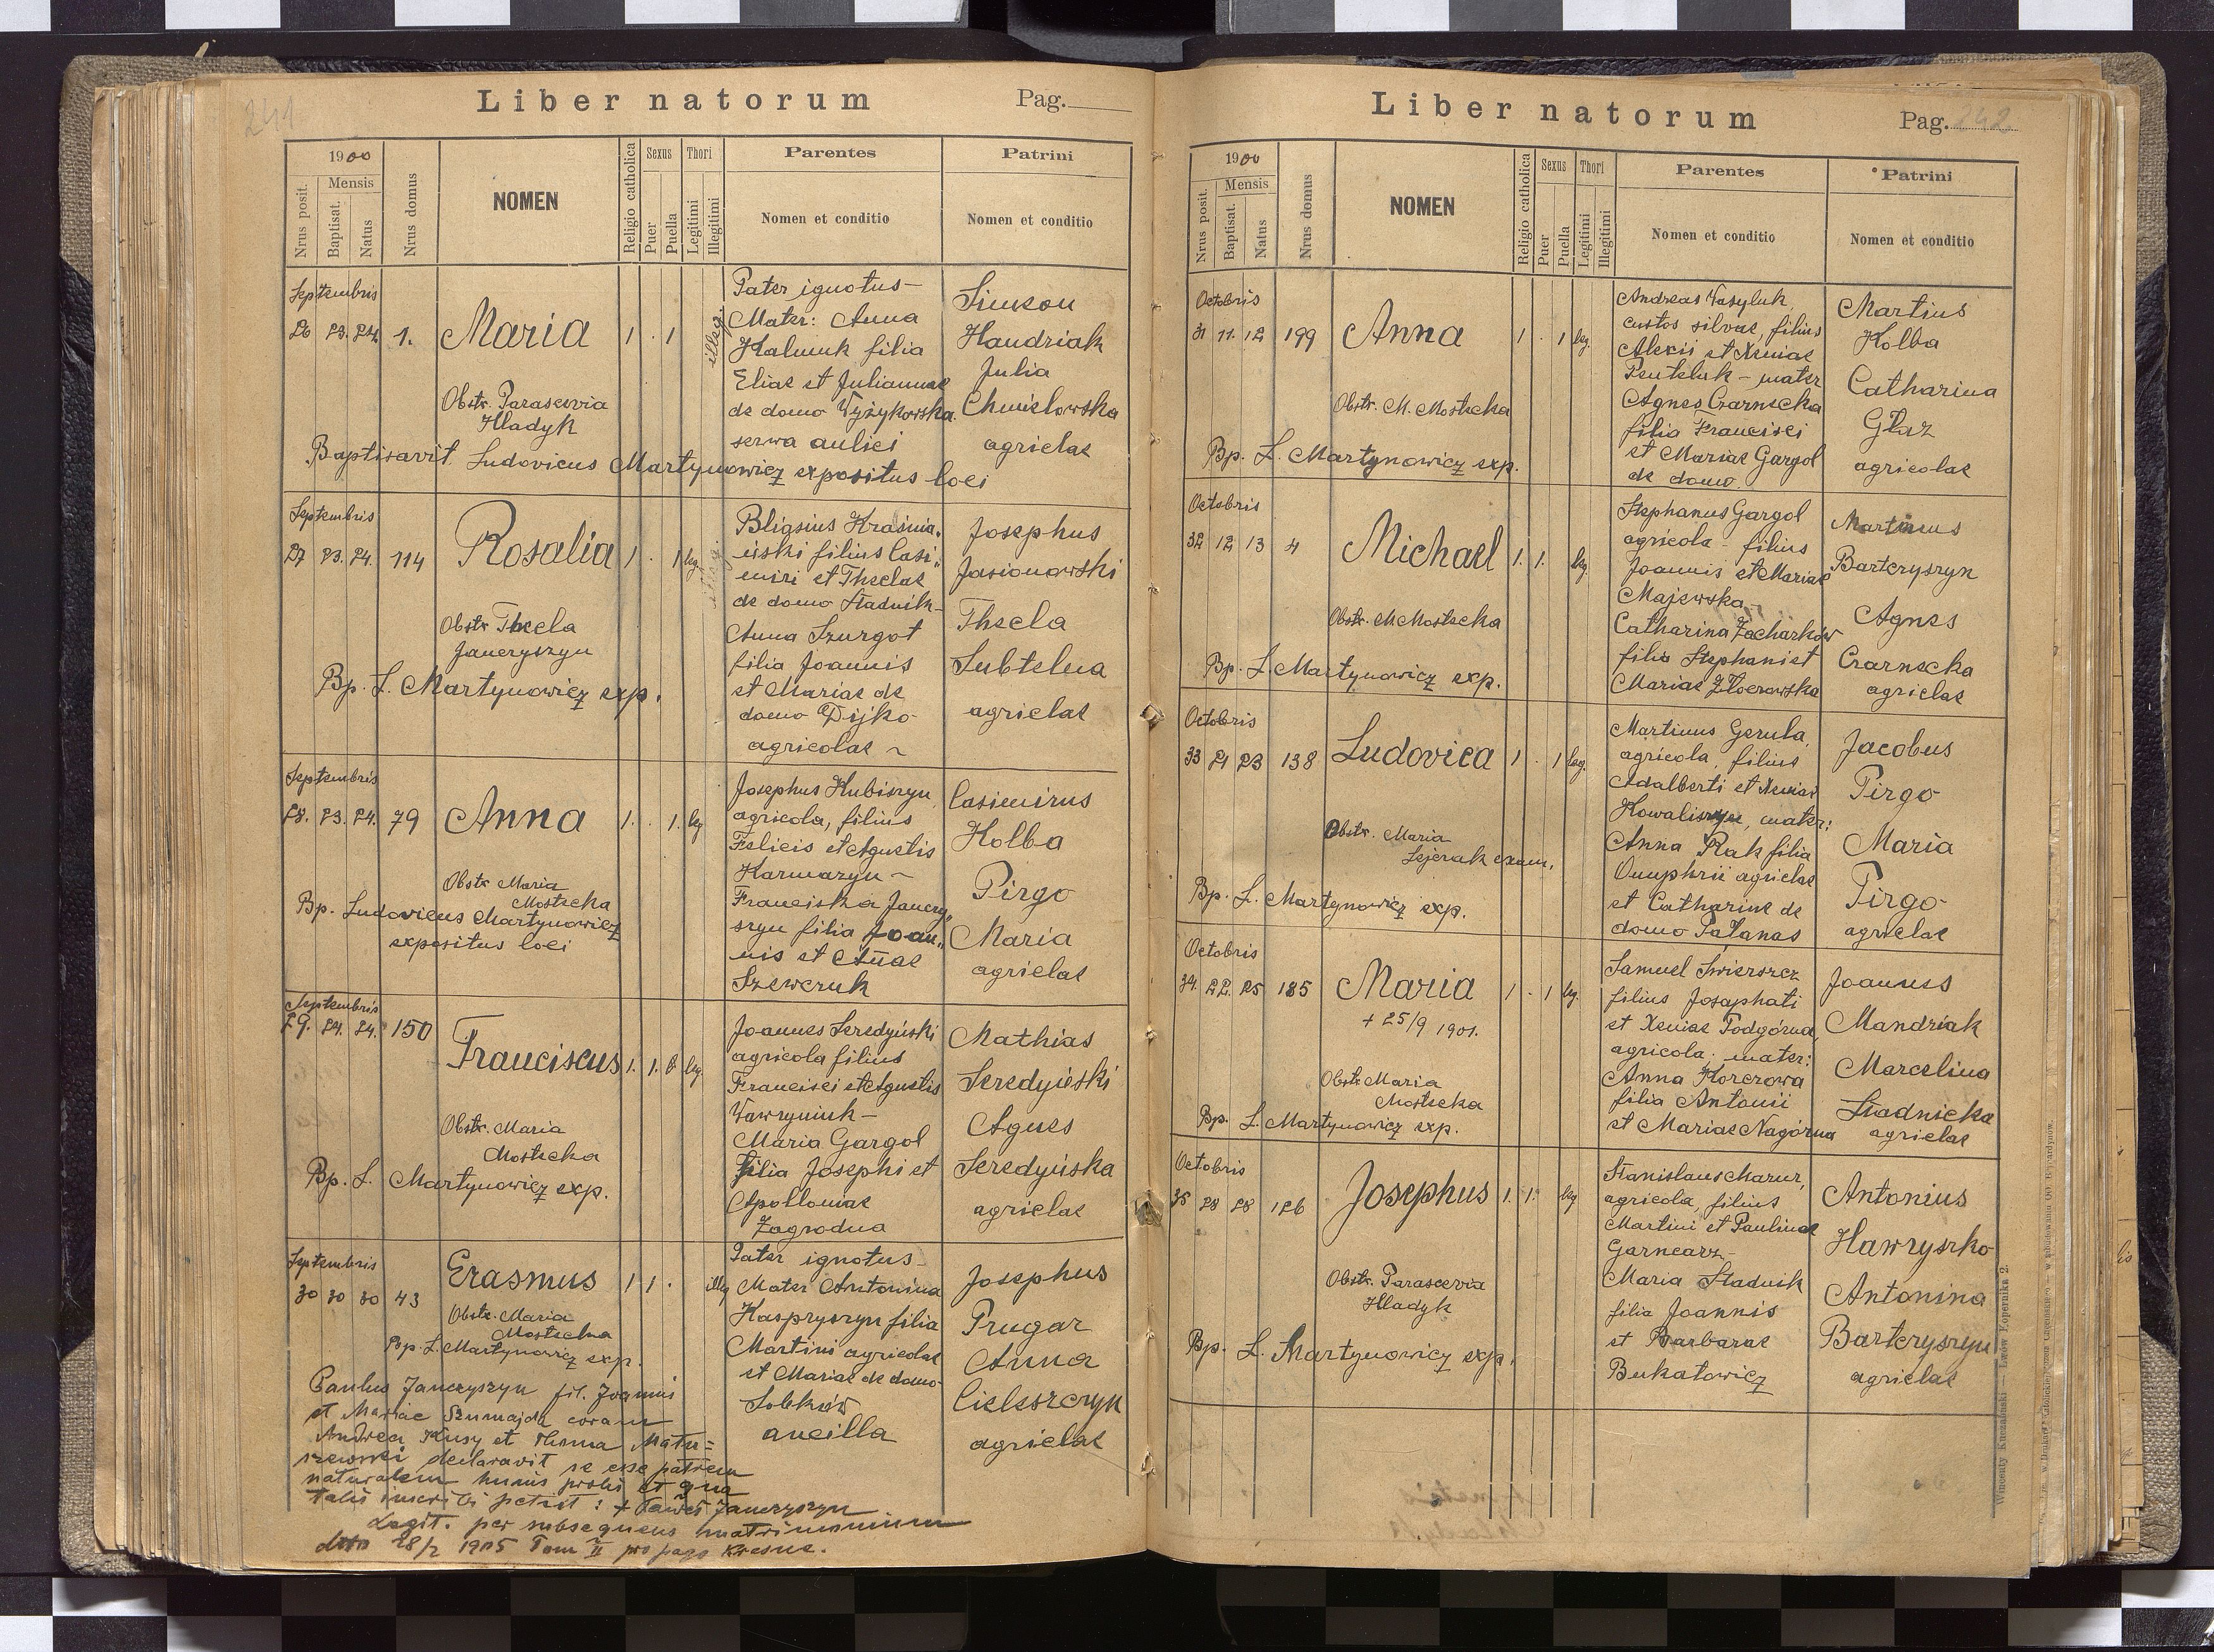 241
Liber natorum Pag.
1900
Nrus posit.
Mensis
Baptisat.
Natus
Nrus domus
NOMEN
Religio catholica
Sexus
Puer
Puella
Thori
Legitimi
Illegitimi
Parentes
Nomen et conditio
Patrini
Nomen et conditio
Septembris
26 23. 24. 1. Maria 1 . 1 illeg.
Obstr. Parascevia
Hladyk
Baptisavit Ludovicus Martynowicz expositus loci
Pater ignotus –
Mater: Anna
Kalmuk filia
Eliae et Juliannae
de domo Wyżykowska
serwa aulici
Simeon
Handriak
Julia
Chmielowska
agricolae
Septembris
27 23. 24. 114 Rosalia 1 . 1 leg.
Obstr. Thecla
Janczyszyn
Bp. L. Martynowicz exp.
Bliasius Kraśnia„
ński filius Casi„
miri et Theclae
de domo Stadnik –
Anna Szurgot
filia Joannis
et Mariae de
domo Dijko
agricolae ~
Josephus
Jasionowski
Thecla
Subtelna
agriclae
Septembris
28. 23. 24. 79 Anna 1. . 1. leg
Obstr Maria
Mostecka
Bp. Ludovicus Martynowicz
expositus loci
Josephus Hubiszyn
agricola, filius
Felicis et Agnetis
Karmazyn ~
Franciska Janczy„
szyn filia Joan„
nis et Annae
Szewczuk
Casimirus
Holba
Pirgo
Maria
agriclae
Septembris
29. 24. 24. 150 Franciscus 1. 1. 0 leg.
Obstr. Maria
Mostecka
Bp. L. Martynowicz exp.
Joannes Seredyński
agricola filius
Francisci et Agnetis
Wawryniuk –
Maria Gargol
filia Josephi et
Apolloniae
Zagrodna
Mathias
Seredyński
Agnes
Seredyńska
agriclae
Septembris
30 30 30 43 Erasmus 1 1 . illeg
Obstr. Maria
Mostecka
Bp. L. Martynowicz exp.
Pater ignotus –
Mater Antonina
Kaspryszyn filia
Martini agricolae
et Mariae de domo
Sobków
ancilla
Josephus
Prugar
Anna
Cieleszczyk
agriclae
Paulus Janczyszyn fil. Joannis
et Mariae Szumajda coram
Andrea Kusy et Thoma Matu=
szewski declaravit se esse patrem
naturalem huius prolis et qua
talis inscribi petiit: + Paweł Janczyszyn
Legit. per subsequens matrimonium
dtto 28/2 1905 Tom II pro pago Krasne.
Liber natorum Pag. 242
1900
Nrus posit.
Mensis
Baptisat.
Natus
Nrus domus
NOMEN
Religio catholica
Sexus
Puer
Puella
Thori
Legitimi
Illegitimi
Parentes
Nomen et conditio
Patrini
Nomen et conditio
Octobris
31 11. 12 199 Anna 1 . 1 leg.
Obstr. M. Mostecka
Bp. L. Martynowicz exp.
Andreas Wasyluk
custos silvae, filius
Alexii et Xeniae
Penteluk – mater
Agnes Czarnecka
filia Francisci
et Mariae Gargol
de domo
Martinus
Holba
Catharina
Głaz
agricolae
Octobris
32 12 13 4 Michael 1. 1. leg.
Obstr. M Mostecka
Bp. L. Martynowicz exp.
Stephanus Gargol
agricola – filius
Joannis et Mariae
Majewska –
Catharina Zacharków
filia Stephani et
Mariae Złoczowska
Martinus
Bartczyszyn
Agnes
Czarnecka
agriclae
Octobris
33 21 23 138 Ludovica 1 . 1 leg.
Obstr. Maria
Lejczak exam.
Bp. L. Martynowicz exp.
Martinus Gerula,
agricola, filius
Adalberti et Xeniae
Kowaliszyn, mater:
Anna Rak filia
Onuphrii agriclae
et Catharine de
domo Patanas
Jacobus
Pirgo
Maria
Pirgo
agriclae
Octobris
34. 22. 25 185 Maria 1 . 1 leg.
+ 25/9 1901.
Obstr Maria
Mostecka
Bp. L. Martynowicz exp.
Samuel Swierszcz
filius Josaphati
et Xeniae Podgórna,
agricola; mater:
Anna Korczowa
filia Antonii
et Mariae Nagórna
Joannes
Mandziak
Marcelina
Stadnicka
agriclae
Octobris
35 28 28 126 Josephus 1. 1. leg
Obstr. Parascevia
Hladyk
Bp. L. Martynowicz exp.
Stanislaus Mazur,
agricola, filius
Martini et Paulinae
Garncarz –
Maria Stadnik
filia Joannis
et Barbarae
Bukatowicz
Antonius
Hawryszko
Antonina
Bartczyszyn
agriclae